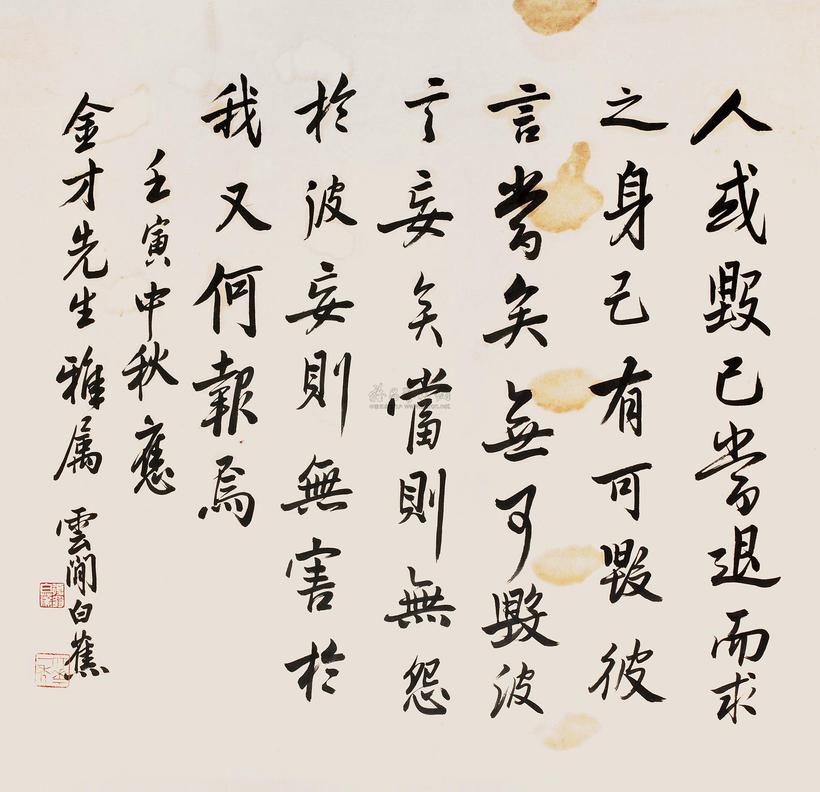 人或毀己當退而求
之身己有可毀彼
言當矣無可毀彼
言妄矣當則無怨
於彼妄則無害於
我又何報焉
壬寅中秋應
金才先生雅属 雲間白蕉